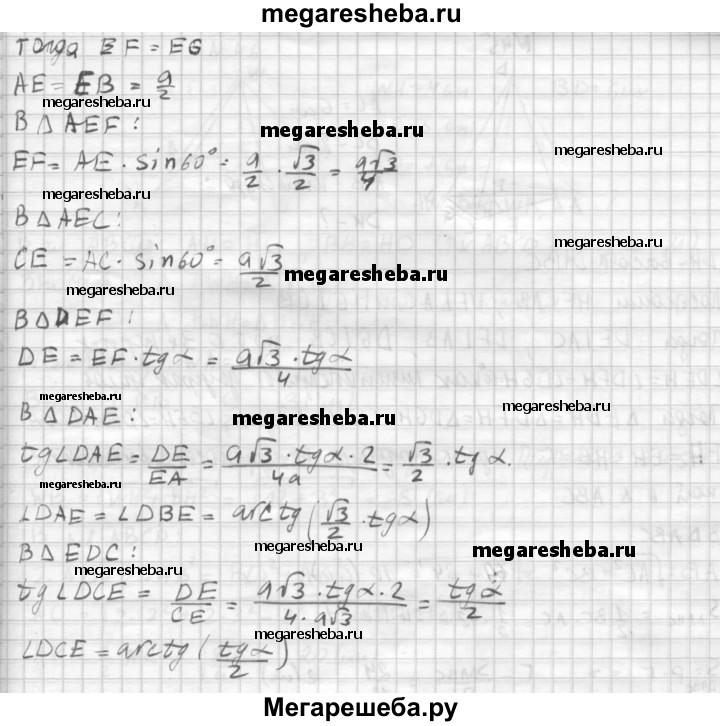 megaresheba.ru
Тогда EF = EG
AE = EB = a/2
megaresheba.ru
В Δ AEF:
megaresheba.ru
megaresheba.ru
EF = AE · sin60° = a/2 · √3/2 = a√3/4
megaresheba.ru
В Δ AEC:
megaresheba.ru
CE = AC · sin60° = a√3/2
megaresheba.ru
megaresheba.ru
В Δ DEF:
DE = EF · tgα = a√3 · tgα/4
megaresheba.ru
megaresheba.ru
В Δ DAE:
megaresheba.ru
tg∠DAE = DE/EA = a√3 · tgα · 2/4a = √3/2 · tgα.
megaresheba.ru
∠DAE = ∠DBE = arctg(√3/2 · tgα)
megaresheba.ru
В Δ EDC:
megaresheba.ru
megaresheba.ru
tg∠DCE = DE/CE = a√3 · tgα · 2/4 · a√3 = tgα/2
megaresheba.ru
∠DCE = arctg(tgα/2)
megaresheba.ru
Мегарешеба.ру